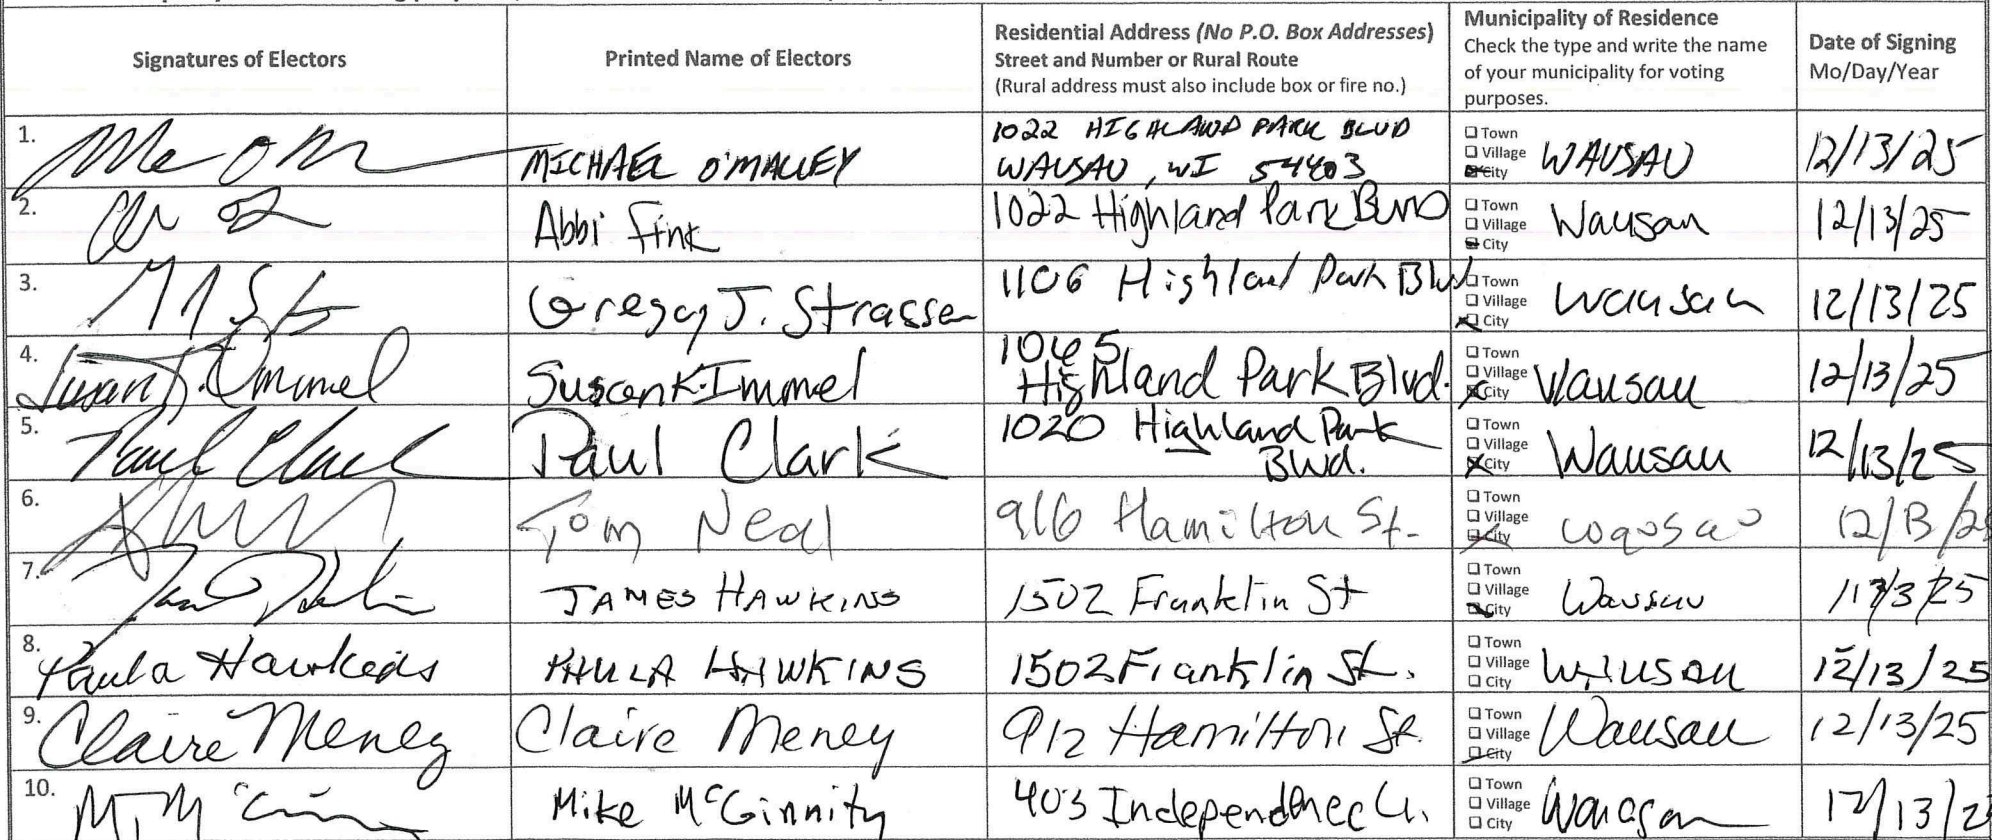 Signatures of Electors
Printed Name of Electors
Residential Address (No P.O. Box Addresses)
Street and Number or Rural Route
(Rural address must also include box or fire no.)
Municipality of Residence
Check the type and write the name
of your municipality for voting
purposes.
Date of Signing
Mo/Day/Year
1.
MICHAEL O'MALLEY
1022 HIGHLAND PARK BLVD
WAUSAU, WI 54403
Town
Village
City
WAUSAU
12/13/25
2.
Abbi Fink
1022 Highland Park Blvd
Town
Village
City
Wausau
12/13/25
3.
Gregory J. Strasser
1106 Highland Park Blvd
Town
Village
City
Wausau
12/13/25
4.
Susan K. Immel
Susan K. Immel
1045
Highland Park Blvd.
Town
Village
City
Wausau
12/13/25
5.
Paul Clark
Paul Clark
1020 Highland Park
Blvd.
Town
Village
City
Wausau
12/13/25
6.
Tom Neal
916 Hamilton St.
Town
Village
City
Wausau
12/13/25
7.
JAMES HAWKINS
1502 Franklin St
Town
Village
City
Wausau
8.
Paula Hawkins
PAULA HAWKINS
1502 Franklin St.
Town
Village
City
Wausau
12/13/25
9.
Claire Meney
Claire Meney
912 Hamilton St.
Town
Village
City
Wausau
12/13/25
10.
Mike McGinnity
403 Independence
Town
Village
City
Wausau
12/13/2